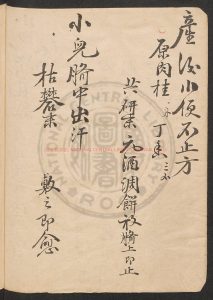 產後小便不止方
原肉桂 丁香
共研末 元酒調餅放臍上即止
小兒臍中出汗
枯礬末 敷之即愈